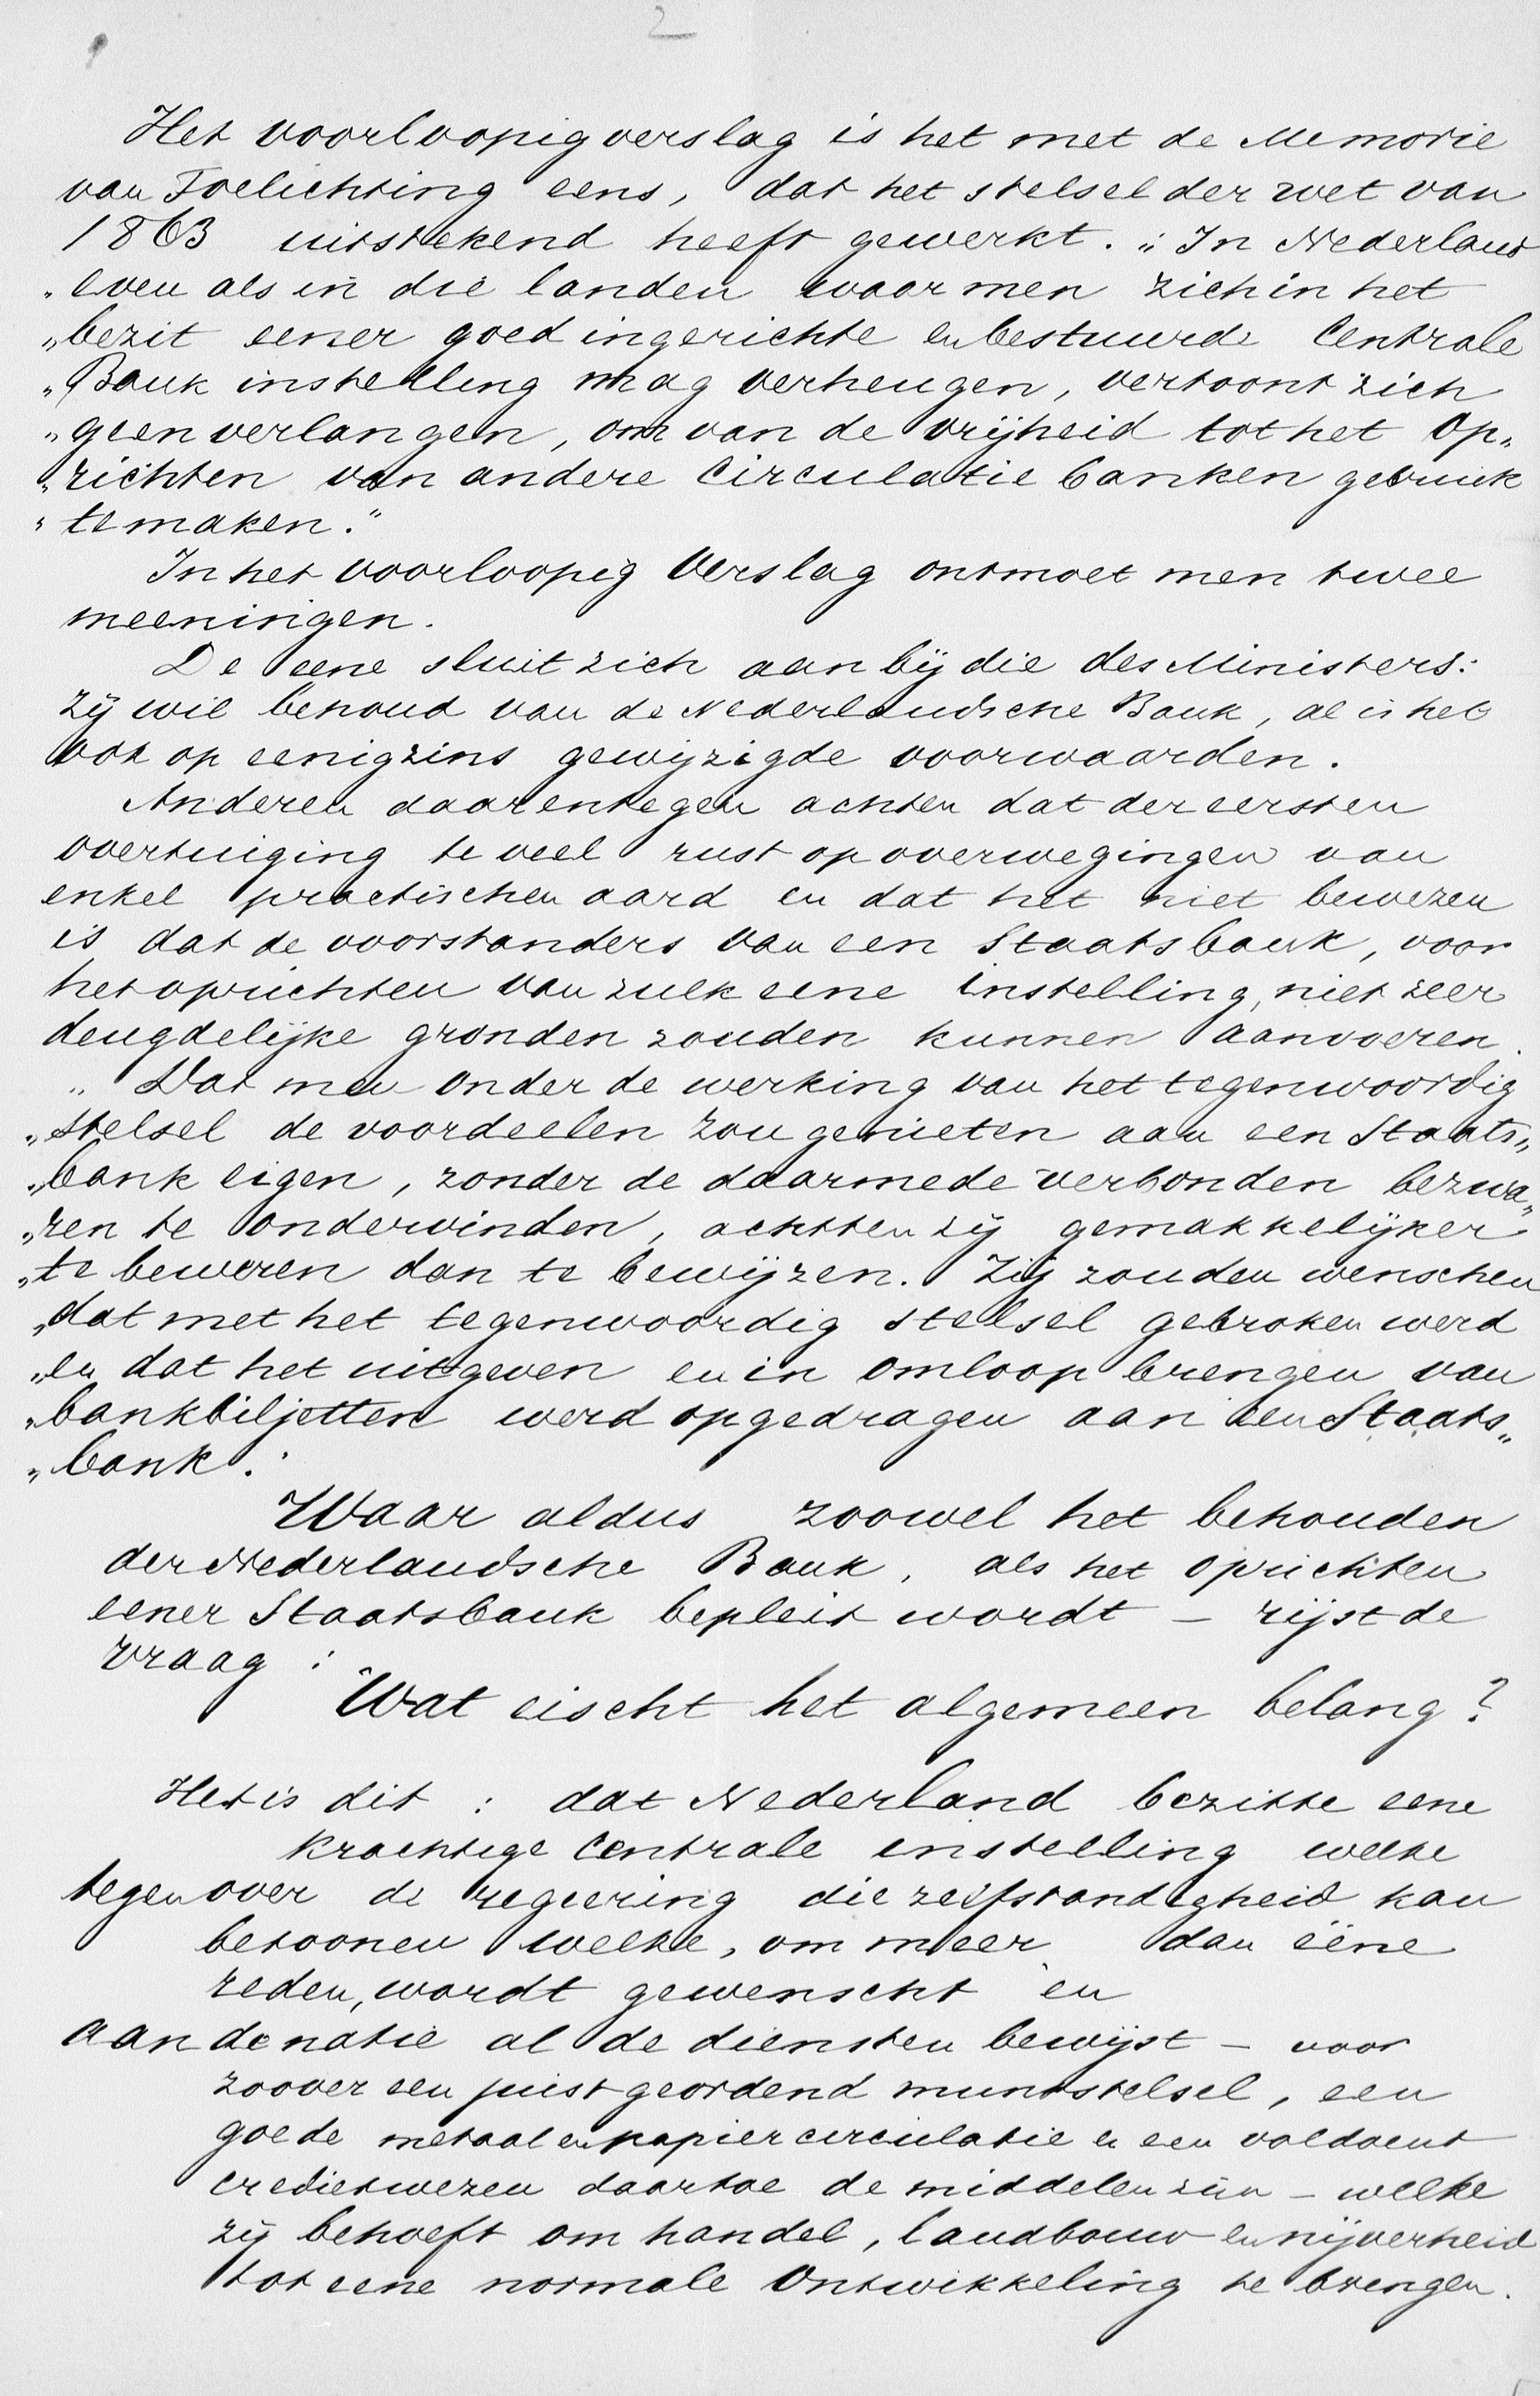 2
Het voorloopig verslag is het met de Memorie
van Toelichting eens, dat het stelsel der wet van
1863 uitstekend heeft gewerkt. „In Nederland
„even als in die landen waar men zich in het
„bezit eener goed ingerichte en bestuurde Centrale
„Bank instelling mag verheugen, vertoont zich
„geen verlangen, om van de vrijheid tot het op„
„richten van andere circulatie banken gebruik
„te maken."
In het voorloopig Verslag ontmoet men twee
meeningen.
De eene sluit zich aan bij die des Ministers:
zij wil behoud van de Nederlandsche Bank, al is het
ook op eenigzins gewijzigde voorwaarden.
Anderen daarentegen achten dat der eersten
overtuiging te veel rust op overwegingen van
enkel practischen aard en dat het niet bewezen
is dat de voorstanders van een Staatsbank, voor
het oprichten van zulk eene instelling, niet zeer
deugdelijke gronden zouden kunnen aanvoeren.
„Dat men onder de werking van het tegenwoordig
„stelsel de voordeelen zou genieten aan een Staats„
„bank eigen, zonder de daarmede verbonden bezwa„
„ren te ondervinden, achtten zij gemakkelijker
„te beweren dan te bewijzen. Zij zouden wenschen
„dat met het tegenwoordig stelsel gebroken werd
„en dat het uitgeven en in omloop brengen van
„bankbiljetten werd opgedragen aan een Staats„
„bank."
Waar aldus zoowel het behouden
der Nederlandsche Bank, als het oprichten
eener Staatsbank bepleit wordt – rijst de
vraag:
Wat eischt het algemeen belang?
Het is dit: dat Nederland bezitte eene
krachtige Centrale instelling welke
tegenover de regeering die zelfstandigheid kan
betoonen welke, om meer dan ééne
reden, wordt gewenscht en
aan de natie al de diensten bewijst – voor
zoover een juist geordend muntstelsel, een
goede metaal en papier circulatie en een voldoend
credietwezen daartoe de middelen zijn – welke
zij behoeft om handel, landbouw en nijverheid
tot eene normale ontwikkeling te brengen.